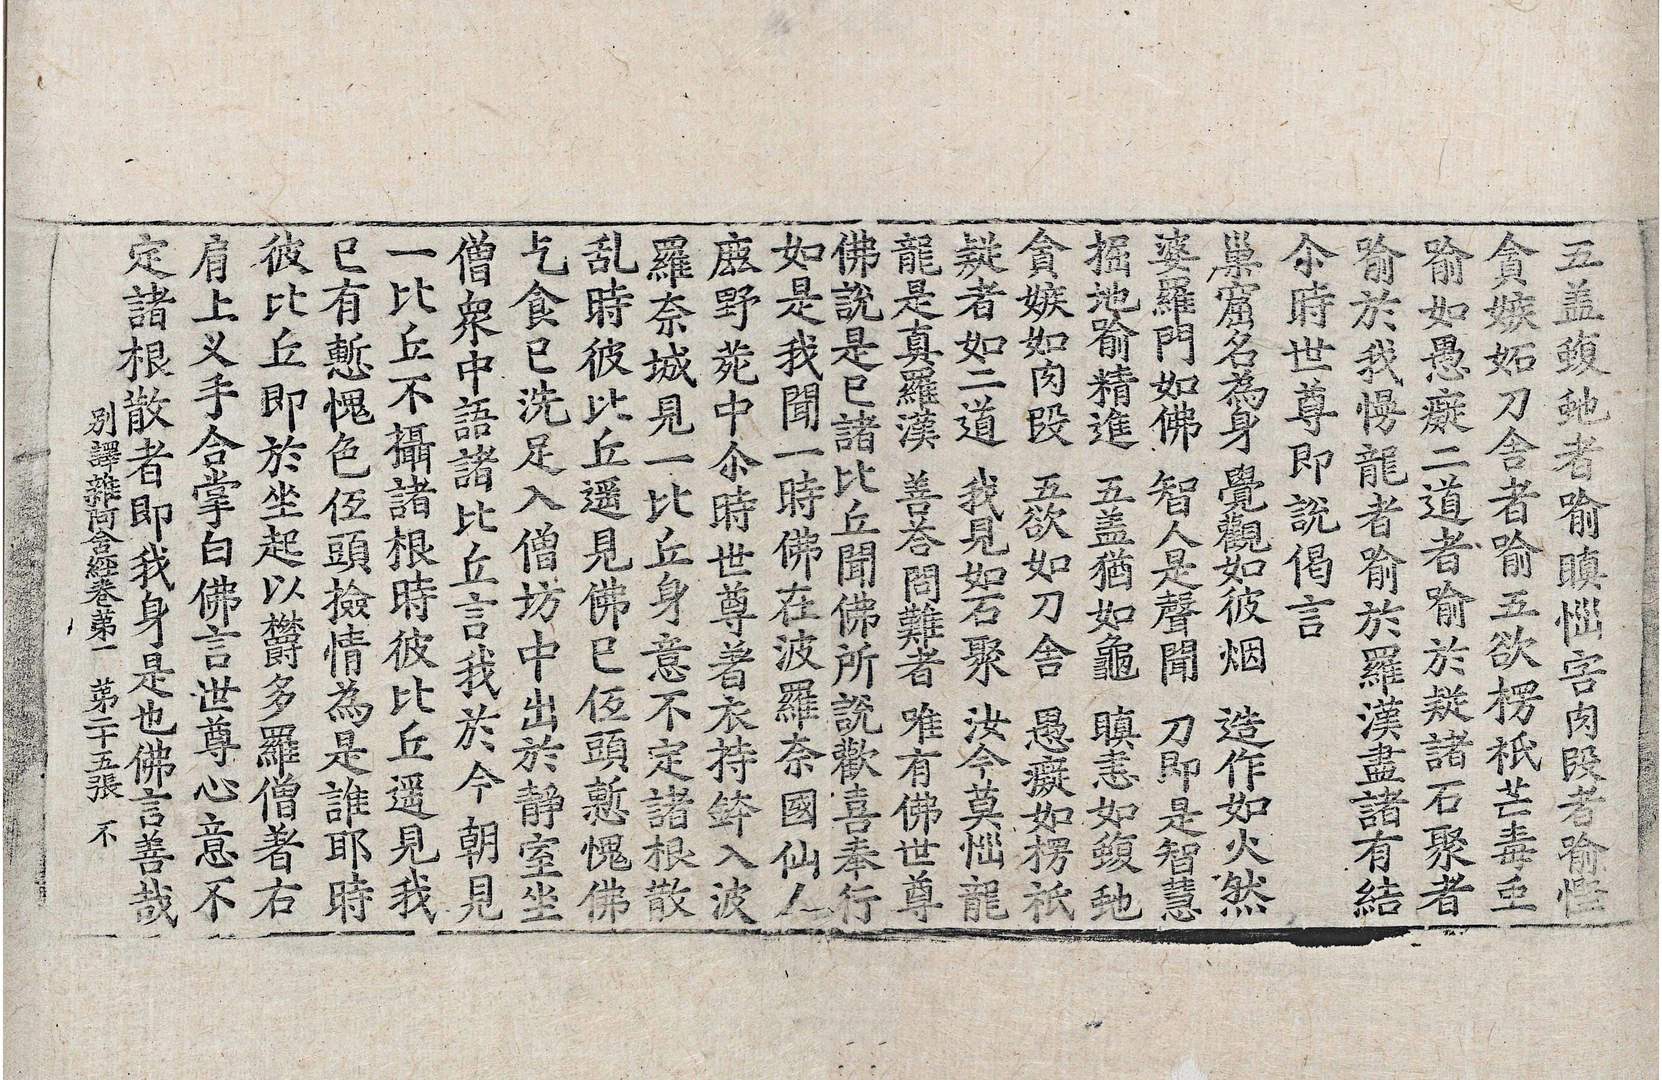 五盖蝮虵者喻瞋惱害肉段者喻慳
貪嫉妬刀舍者喻五欲楞祇芒毒䖝
喻如愚癡二道者喻於疑諸石聚者
喻於我慢龍者喻於羅漢盡諸有結
尒時世尊即說偈言
巢窟名為身 覺觀如彼烟 造作如火然
婆羅門如佛 智人是聲聞 刀即是智慧
掘地喻精進 五盖猶如龜 瞋恚如蝮虵
貪嫉如肉段 五欲如刀舍 愚癡如楞祇
疑者如二道 我見如石聚 汝今莫惱龍
龍是真羅漢 善荅問難者 唯有佛世尊
佛說是已諸比丘聞佛所說歡喜奉行
如是我聞一時佛在波羅奈國仙人
鹿野苑中尒時世尊著衣持鉢入波
羅奈城見一比丘身意不定諸根散
乱時彼比丘遥見佛已低頭慙愧佛
乞食已洗足入僧坊中出於靜室坐
僧衆中語諸比丘言我於今朝見
一比丘不攝諸根時彼比丘遥見我
已有慙愧色低頭撿情為是誰耶時
彼比丘即於坐起以欝多羅僧著右
肩上叉手合掌白佛言世尊心意不
定諸根散者即我身是也佛言善哉
別譯雜阿含經卷第一 第二十五張 不